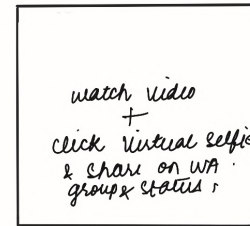 watch video
+
click virtual selfie
& share on WA
group & status.